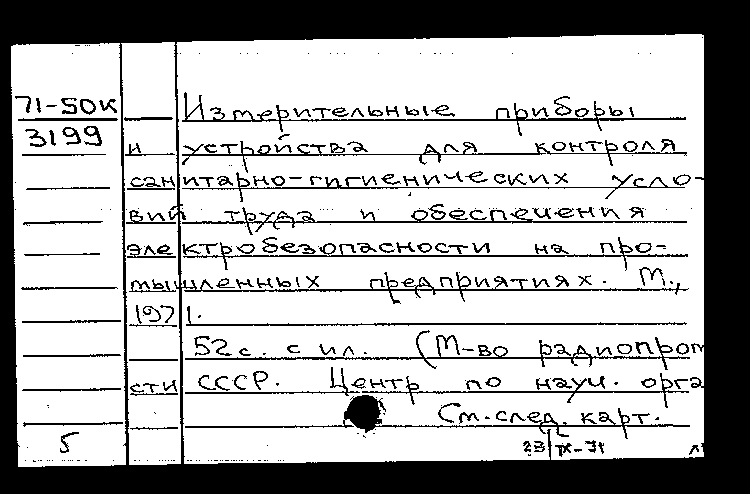 71-50к Измерительные приборы
3199 и устройства для контроля
санитарно-гигиенических усло-
вий труда и обеспечения
электробезопасности на про-
мышленных предприятиях. М.,
1971.
52 с. с ил. (М-во радиопром
сти СССР. Центр по науч. орга
См. след. карт.
5 23/IX-71